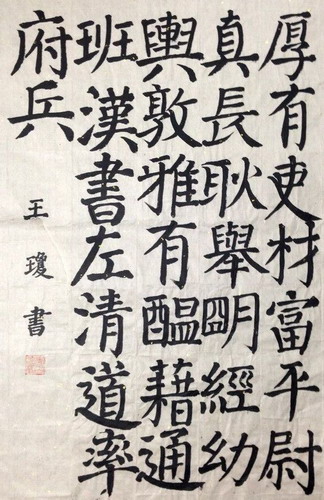 厚有吏材富平尉
真長耿舉明經幼
輿敦雅有醞藉通
班漢書左清道率
府兵
王瓊書